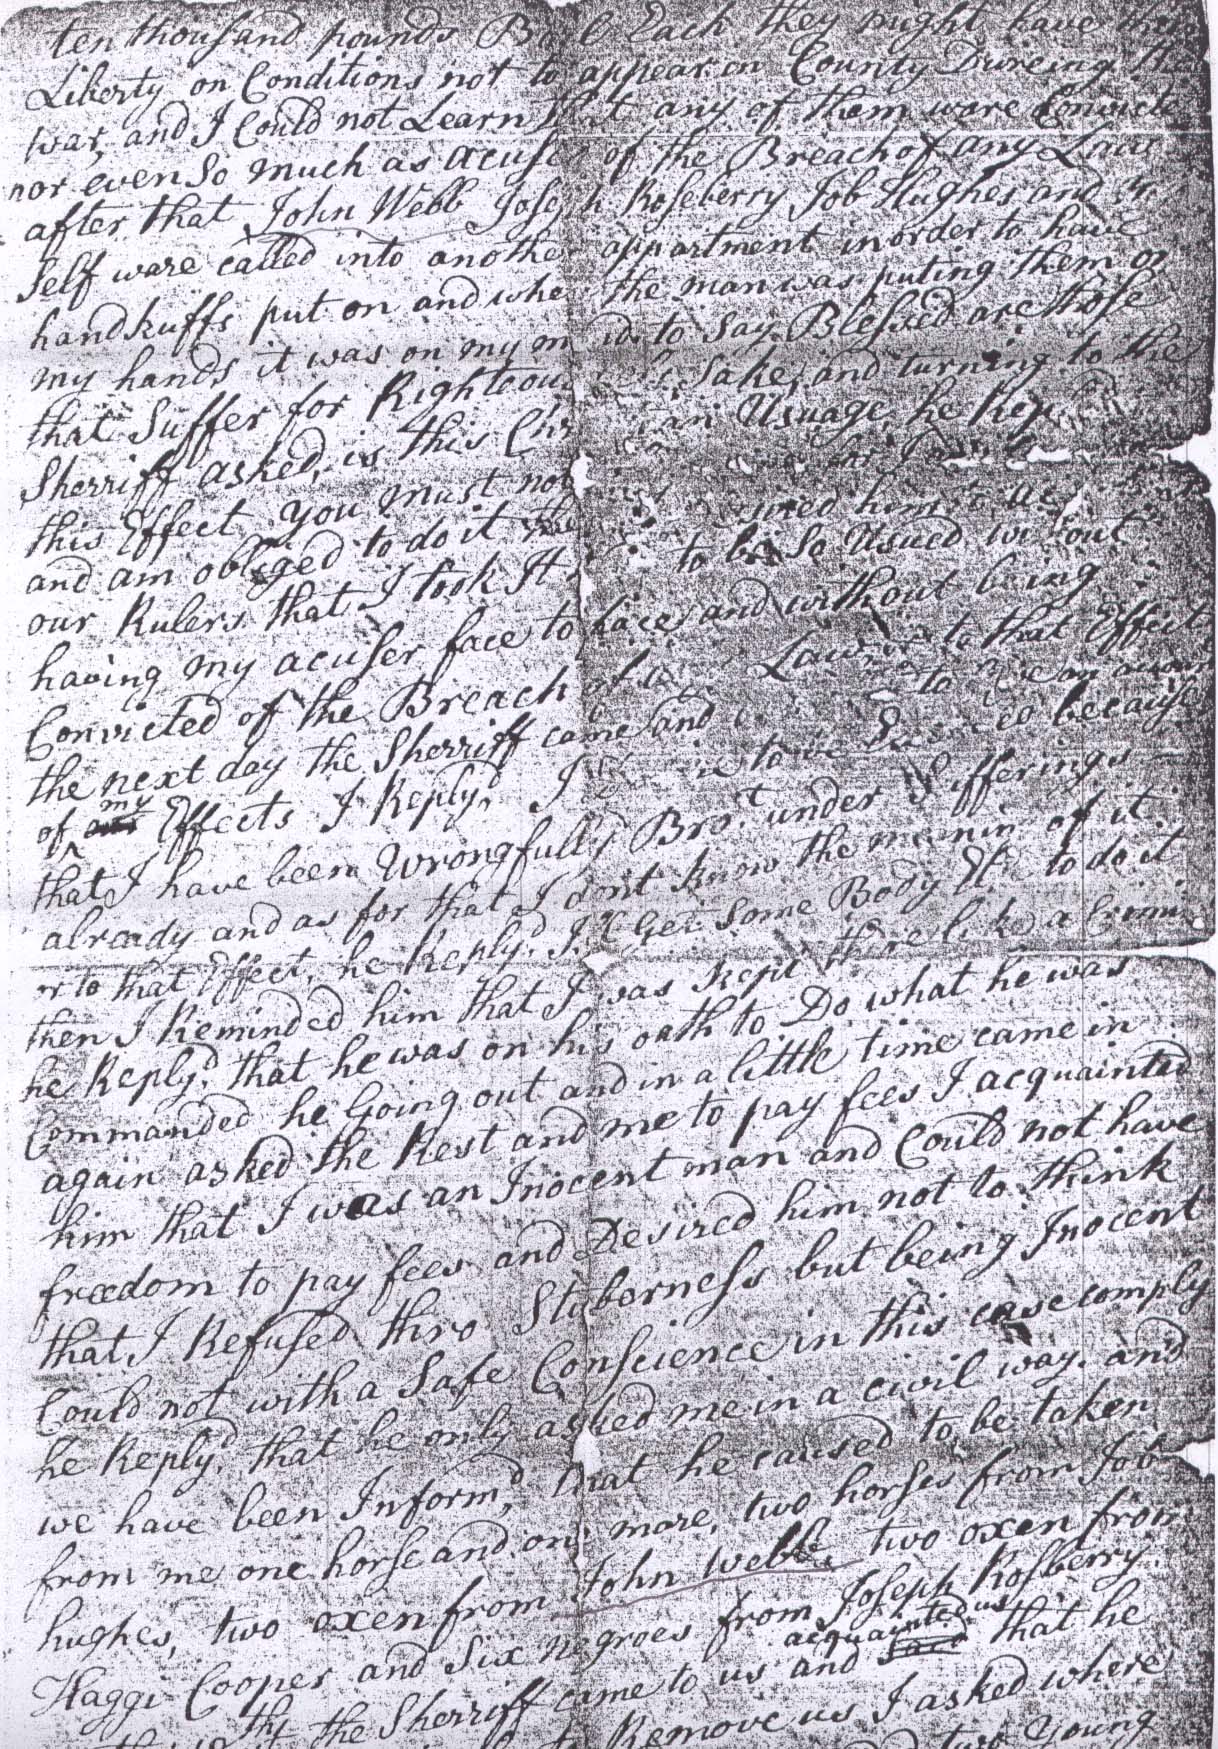 ten thousand pounds Each they might have their
Liberty on Conditions not to appear in County Dureing the
war, and I Could not Learn that any of them ware Convicted
nor even So much as acused of the Breach of any Law
after that John Webb Joseph Roseberry Job Hughes and my
Self ware called into another appartment inorder to have
handkuffs put on and when the man was puting them on
my hands it was on my mind to Say Blessed are those
that Suffer for Righteous Sake, and turning to the
Sherriff asked, is this Christian Usuage, he Reply
this Effect You must not
and am obliged to do it him to
our Rulers that I took It to be So Usued without
having my acuser face to face and without being
Convicted of the Breach of Law or to that Effect
the next day the Sherriff came and to
of my Effects I Reply'd I because
that I have been Wrongfully Bro.t under Sufferings
already and as for that I dont know the menin of it
or to that Effect, he Reply'd I'll Get Some Body to do it
then I Reminded him that I was kept there like a
he Reply'd that he was on his oath to Do what he was
Commanded he Going out and in a little time came in
again asked the Rest and me to pay fees I acquainted
him that I was an Inocent man and Could not have
freedom to pay fees and Desired him not to think
that I Refused thro Stuberness but being Inocent
Could not with a Safe Conscience in this case comply
he Reply'd that he only asked me in a civil way. and
we have been Inform'd that he caused to be taken
from me one horse and one mare, two horses from Job
hughes, two oxen from John Webb, two oxen from
Haggi Cooper and Six negroes from Joseph Rosberry
acquainted us
the Sherriff came to us and that he
Remove us I asked where
two Young